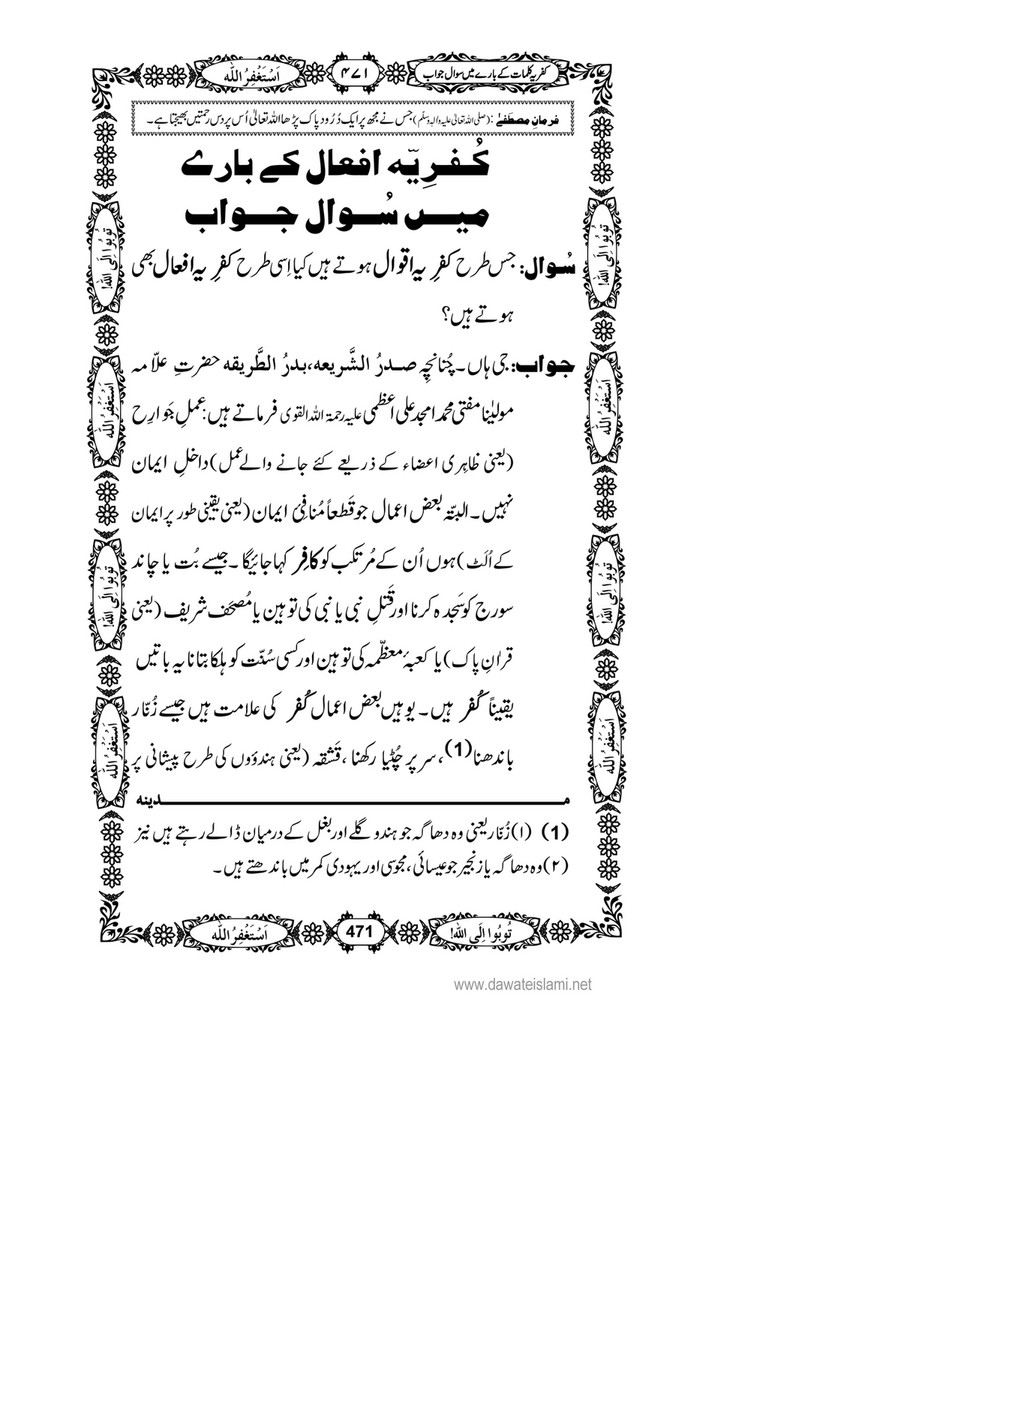 کفریہ کلمات کے بارے میں سوال جواب
۴۷۱
اَسْتَغْفِرُ اللّٰه
فرمانِ مصطَفٰے :(صلی اللہ تعالیٰ علیہ والہٖ وسلّم) جس نے مجھ پر ایک دُرُود پاک پڑھا اللہ تعالیٰ اُس پر دس رحمتیں بھیجتا ہے۔
کُفرِیّہ افعال کے بارے
میں سُوال جواب
سُوال: جس طرح کفرِیہ اقوال ہوتے ہیں کیا اِسی طرح کفرِیہ افعال بھی
ہوتے ہیں؟
جواب: جی ہاں۔ چُنانچِہ صدرُ الشَّریعہ، بدرُ الطَّریقہ حضرتِ علّامہ
مولیٰنا مفتی محمد امجد علی اعظمی علیہ رحمۃ اللہ القوی فرماتے ہیں: عملِ جَوارِح
(یعنی ظاہِری اعضاء کے ذریعے کئے جانے والے عمل) داخلِ ایمان
نہیں۔ البتّہ بعض اعمال جو قَطعاً مُنافِیٔ ایمان (یعنی یقینی طور پر ایمان
کے اُلَٹ) ہوں اُن کے مُرتکب کو کافِر کہا جائیگا۔ جیسے بُت یا چاند
سورج کو سَجدہ کرنا اور قَتلِ نبی یا نبی کی توہین یا مُصحَف شریف (یعنی
قراٰنِ پاک) یا کعبۂ معظّمہ کی توہین اور کسی سُنّت کو ہلکا بتانا یہ باتیں
یقیناً کُفر ہیں۔ یوہیں بعض اعمال کُفر کی علامت ہیں جیسے زُنّار
باندھنا(1)، سر پر چُٹیا رکھنا، قَشقہ (یعنی ہندؤوں کی طرح پیشانی پر
مـدینه
(1) (۱) زُنّار یعنی وہ دھاگہ جو ہندو گلے اور بغل کے درمیان ڈالے رہتے ہیں نیز
(۲) وہ دھاگہ یا زنجیر جو عیسائی، مجوسی اور یہودی کمر میں باندھتے ہیں۔
تُوبُوا اِلَی اللّٰه!
اَسْتَغْفِرُ اللّٰه
تُوبُوا اِلَی اللّٰه!
اَسْتَغْفِرُ اللّٰه
تُوبُوا اِلَی اللّٰه!
اَسْتَغْفِرُ اللّٰه
تُوبُوا اِلَی اللّٰه!
اَسْتَغْفِرُ اللّٰه
تُوبُوا اِلَی اللّٰه!
471
اَسْتَغْفِرُ اللّٰه
www.dawateislami.net